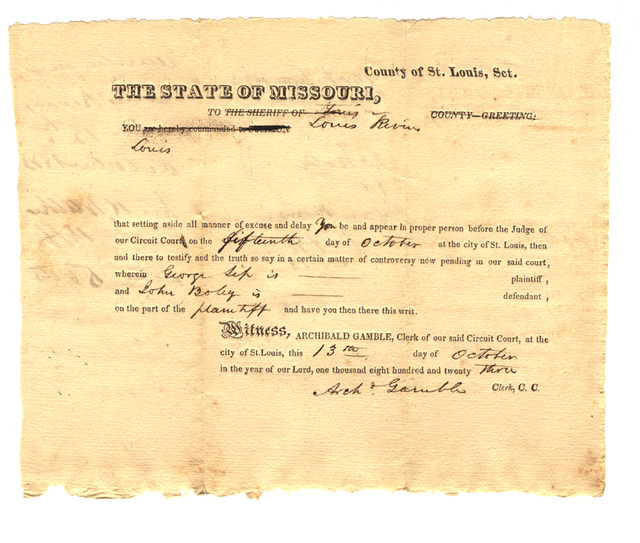 County of St. Louis, Sct.
THE STATE OF MISSOURI,
TO THE SHERIFF OF Louis COUNTY—GREETING:
YOU are hereby commanded to SUMMON Louis
Louis
that setting aside all manner of excuse and delay You be and appear in proper person before the Judge of
our Circuit Court, on the fifteenth day of October at the city of St. Louis, then
and there to testify and the truth so say in a certain matter of controversy now pending in our said court,
wherein George Sip is plaintiff,
and John Boley is defendant,
on the part of the plaintiff and have you then there this writ.
Witness, ARCHIBALD GAMBLE, Clerk of our said Circuit Court, at the
city of St. Louis, this 13th day of October
in the year of our Lord, one thousand eight hundred and twenty three
Archd. Gamble Clerk, C. C.